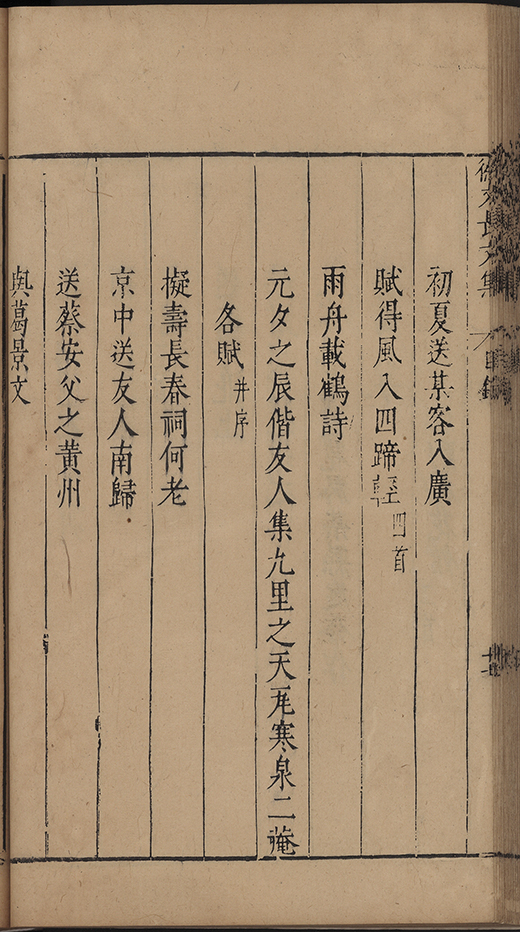 徐文長文集 目錄
初夏送某客入廣
賦得風入四蹄輕四首
雨舟載鶴詩
元夕之辰偕友人集九里之天瓦寒泉二菴
各賦并序
擬壽長春祠何老
京中送友人南歸
送蔡安父之黃州
與葛景文